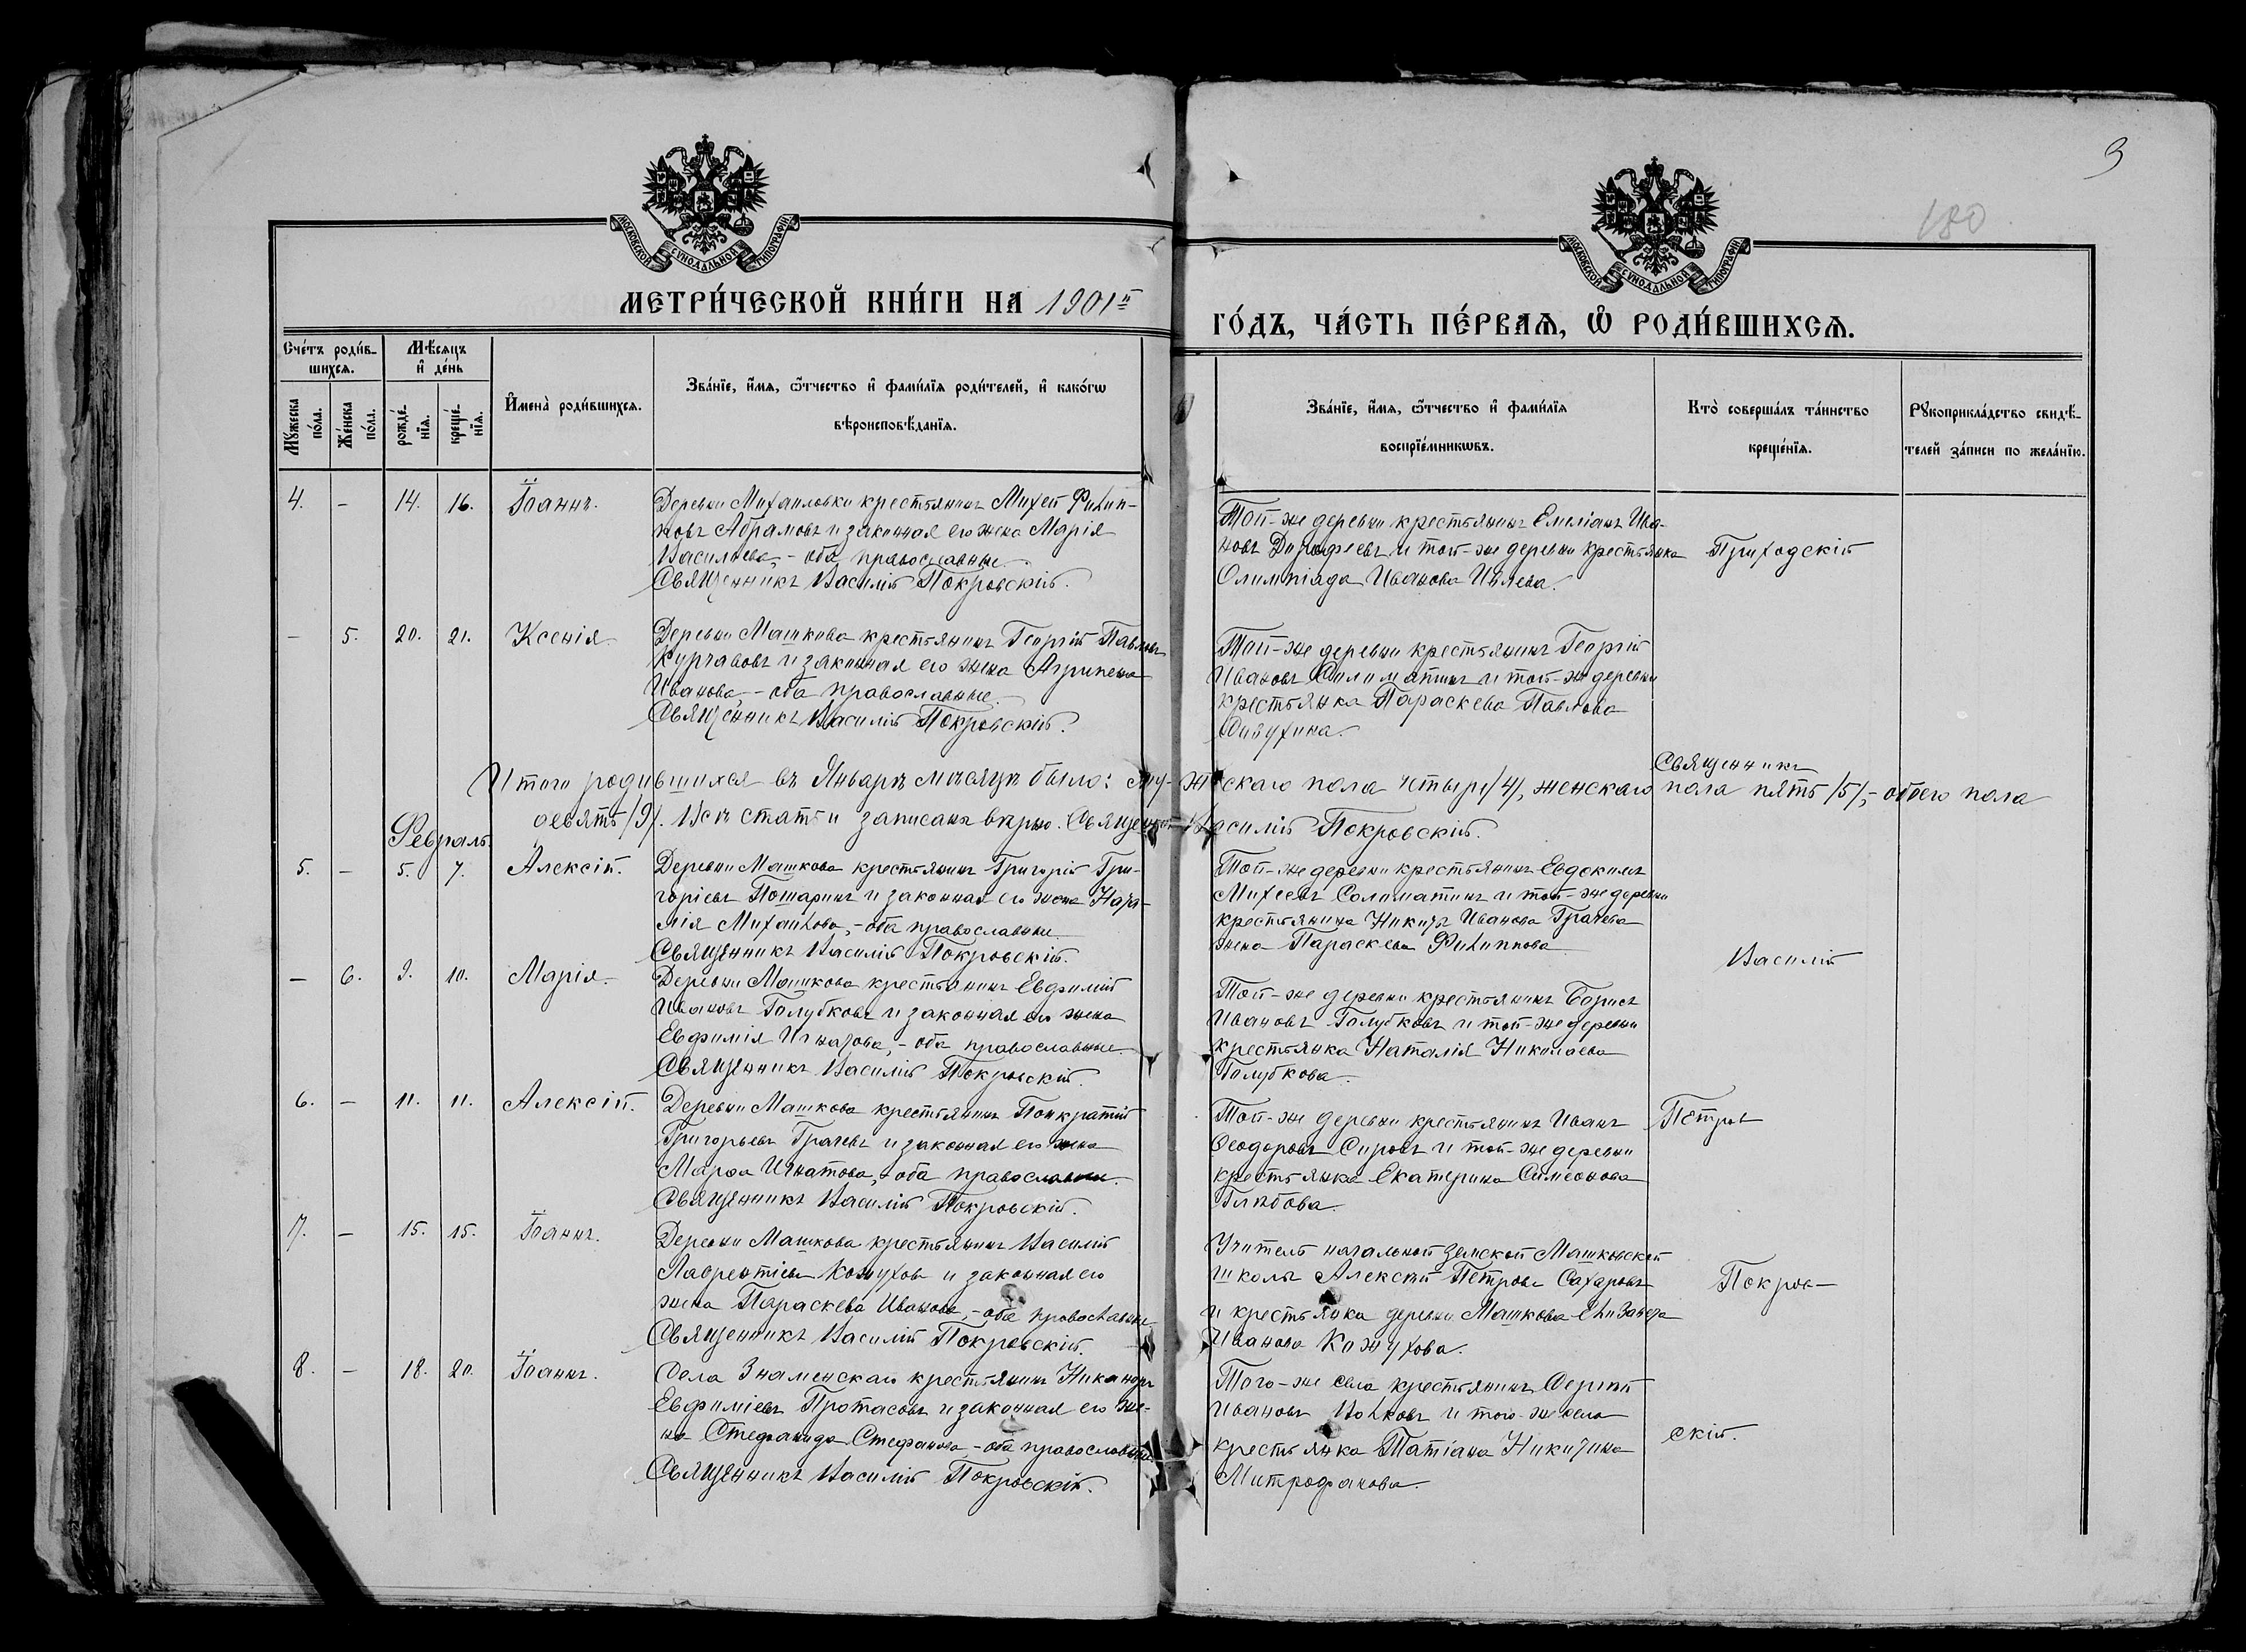 3
180
МОСКОВСКОЙ СѴНОДАЛЬНОЙ ТИПОГРАФІИ
МОСКОВСКОЙ СѴНОДАЛЬНОЙ ТИПОГРАФІИ
МЕТРИ́ЧЕСКОЙ КНИ́ГИ НА 1901й
ГО́ДЪ, ЧА́СТЬ ПЕ́РВАѦ, Ѽ РОДИ́ВШИХСѦ.
Сче́тъ роди́в-
шихсѧ.
Мѣ́сѧцъ
и҆ де́нь
Мꙋ́жеска
по́ла.
Же́нска
по́ла.
рожде́-
нїѧ.
креще́-
нїѧ.
И҆мена̀ роди́вшихсѧ.
Зва́нїе, и҆́мѧ, ѻ҆́тчество и҆ фамѝлїѧ роди́телей, и҆ како́гѡ
вѣроисповѣ́данїѧ.
Зва́нїе, и҆́мѧ, ѻ҆́тчество и҆ фами́лїѧ
воспрїе́мникѡвъ.
Кто̀ соверша́лъ та́инство
креще́нїѧ.
Рꙋкоприкла́дство свидѣ́-
телей за́писи по жела́нїю.
4. - 14. 16. Іоаннъ.
Деревни Михаиловки крестьянинъ Михей Филип-
повъ Абрамовъ и законная его жена Марія
Васильева, - оба православные.
Священникъ Василій Покровскій.
Той-же деревни крестьянинъ Емеліанъ Ива-
новъ Дорофеевъ и той-же деревни крестьянка
Олимпіада Иванова
Приходскій
- 5. 20. 21. Ксенія.
Деревни Машкова крестьянинъ Георгій Павловъ
Курчавовъ и законная его жена Агрипена
Иванова - оба православные.
Священникъ Василій Покровскій.
Той-же деревни крестьянинъ Георгій
Ивановъ Солиматинъ и той-же деревни
крестьянка Параскева Павлова
Священникъ
Итого родившихся въ Январѣ мѣсяцѣ было: муж-скаго пола четыре /4/, женскаго пола пять /5/, - обоего пола
девять /9/. Всѣ статьи записаны вѣрно. Священникъ Василій Покровскій.
Февраль.
5. - 5. 7. Алексій.
Деревни Машкова крестьянинъ Григорій Гри-
горіевъ Пошаринъ и законная его жена Ната-
лія Михаилова, - оба православные.
Священникъ Василій Покровскій.
Той-же деревни крестьянинъ Евдокимъ
Михеевъ Солиматинъ и той-же деревни
крестьянина Никиты Иванова Грачева
жена Параскева Филиппова
Василій
- 6. 9. 10. Марія.
Деревни Машкова крестьянинъ Евфимій
Ивановъ Голубковъ и законная его жена
Евфимія Игнатова, - оба православные.
Священникъ Василій Покровскій.
Той-же деревни крестьянинъ Борисъ
Ивановъ Голубковъ и той-же деревни
крестьянка Наталія Николаева
Голубкова.
6. - 11. 11. Алексій.
Деревни Машкова крестьянинъ Панкратій
Григорьевъ Грачевъ и законная его жена
Марѳа Игнатова, - оба православные.
Священникъ Василій Покровскій.
Той-же деревни крестьянинъ Иванъ
Ѳеодоровъ Сировъ и той-же деревни
крестьянка Екатерина Симеонова
Глѣбова.
Петров
7. - 15. 15. Іоаннъ.
Деревни Машкова крестьянинъ Василій
Лаврентіевъ Кожуховъ и законная его
жена Параскева Иванова, - оба православные.
Священникъ Василій Покровскій.
Учитель начальной земской Машковской
школы Алексѣй Петровъ Сахаровъ
и крестьянка деревни Машкова Елизавета
Иванова Кожухова.
Покров-
8. - 18. 20. Іоаннъ.
Села Знаменскаго крестьянинъ Никаноръ
Евфиміевъ Протасовъ и законная его же-
на Стефанида Стефанова - оба православные.
Священникъ Василій Покровскій.
Того-же села крестьянинъ Сергій
Ивановъ Волковъ и того-же села
крестьянка Татіана Никитина
Митрофанова.
скій.